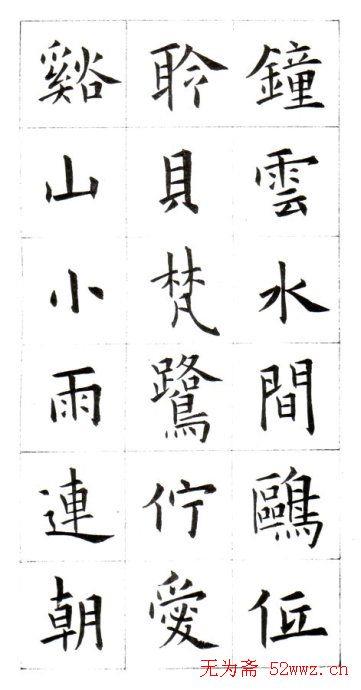 鐘雲水間鷗
聆貝梵鷺佇愛
谿山小雨連朝
无为斋 52wwz.cn